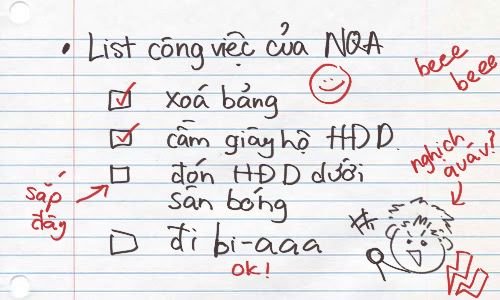 • List công việc của NQA
beee
beee
xoá bảng
cầm giày hộ HĐD
đón HĐD dưới
sân bóng
sắp
đây
đi bi-aaa
ok!
nghịch
quá v?